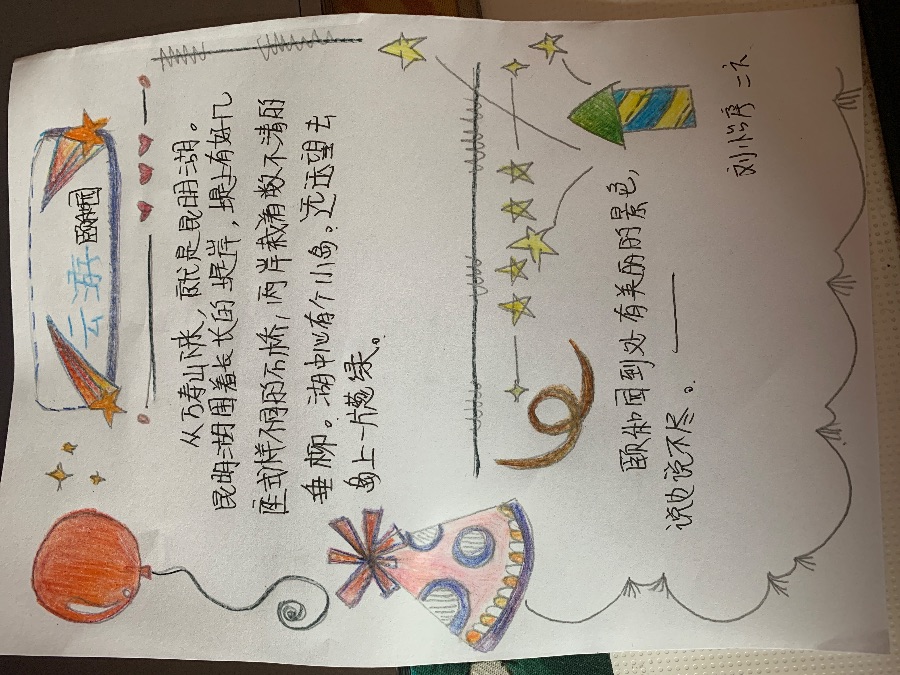 云游颐和园
从万寿山下来，就是昆明湖。
昆明湖围着长长的堤岸，堤上有好几
座式样不同的石桥，两岸栽着数不清的
垂柳。湖中心有个小岛。远远望去
岛上一片葱绿。
颐和园到处有美丽的景色，
说也说不尽。
刘怡序 二六